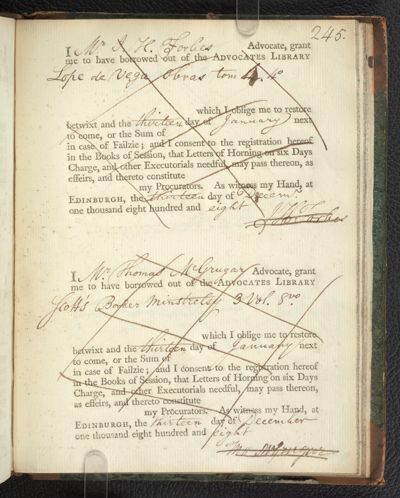 245.
I Mr. J. H. Forbes Advocate, grant
me to have borrowed out of the ADVOCATES LIBRARY
Lope de Vega Obras tom 4. 4o
which I oblige me to restore
betwixt and the thirteen day of January next
to come, or the Sum of
in case of Failzie; and I consent to the registration hereof
in the Books of Session, that Letters of Horning on six Days
Charge, and other Executorials needful, may pass thereon, as
effeirs, and thereto constitute
my Procurators. As witness my Hand, at
EDINBURGH, the thirteen day of Decemr.
one thousand eight hundred and eight
I Mr. Thomas McGrugar Advocate, grant
me to have borrowed out of the ADVOCATES LIBRARY
Scott's Border Minstrelsy 3 Vol. 8vo
which I oblige me to restore
betwixt and the thirteen day of January next
to come, or the Sum of
in case of Failzie; and I consent to the registration hereof
in the Books of Session, that Letters of Horning on six Days
Charge, and other Executorials needful, may pass thereon,
as effeirs, and thereto constitute
my Procurators. As witness my Hand, at
EDINBURGH, the thirteen day of December
one thousand eight hundred and eight